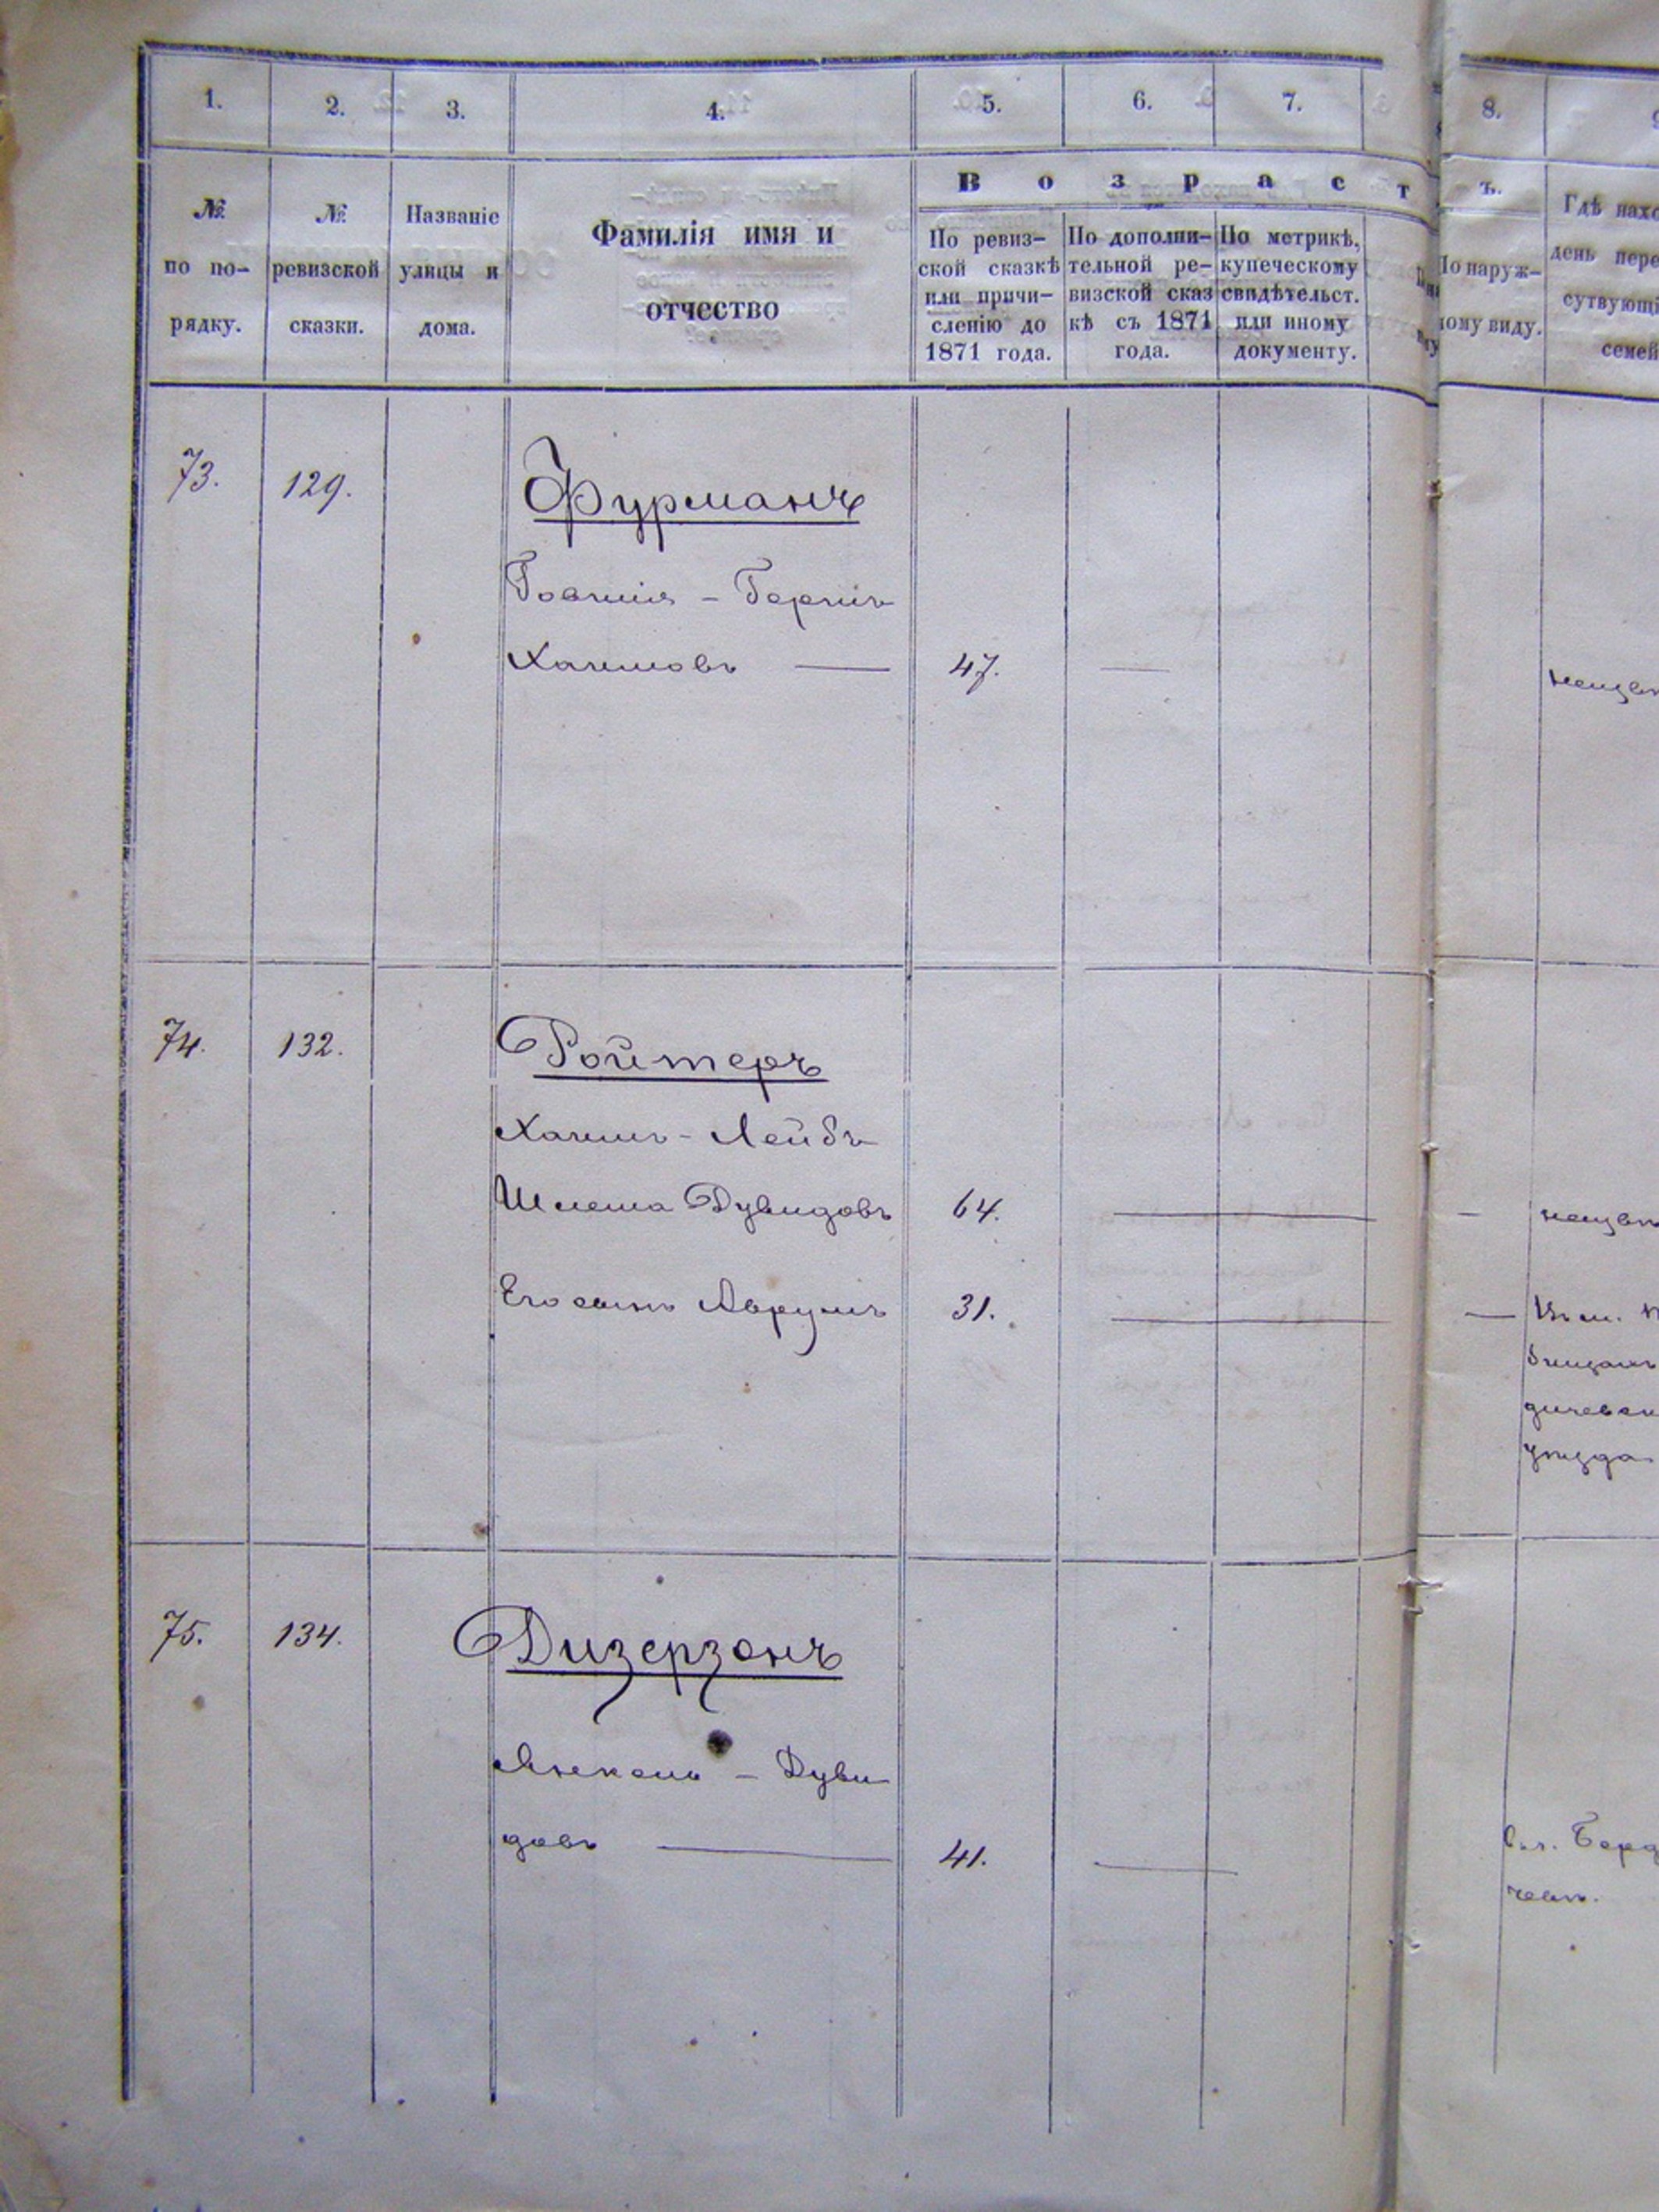 1. 2. 3. 4. 5. 6. 7. 8.
Возраст ъ.
№ по по-рядку.
№ ревизской сказки.
Названіе улицы и дома.
Фамилія имя и отчество
По ревиз-
ской сказкѣ
или причи-
сленію до
1871 года.
По дополни-
тельной ре-
визской сказ
кѣ съ 1871
года.
По метрикѣ,
купеческому
свидѣтельст.
или иному
документу.
По наруж-
ному виду.
Гдѣ нахо
день пере
сутвующі
семей
73. 129. Фурманъ
Хаимовъ — 47. — неизвѣ
74. 132. Ройтеръ
Хаимъ - Лейбъ
Шлема Дувидовъ 64. — — неизвѣ
Его сынъ Аврумъ 31. — — Въ м.
дичевск
уѣзда
75. 134. Дизерзонъ
Янкель - Дуви
довъ — 41. — в г. Берд
чевѣ.